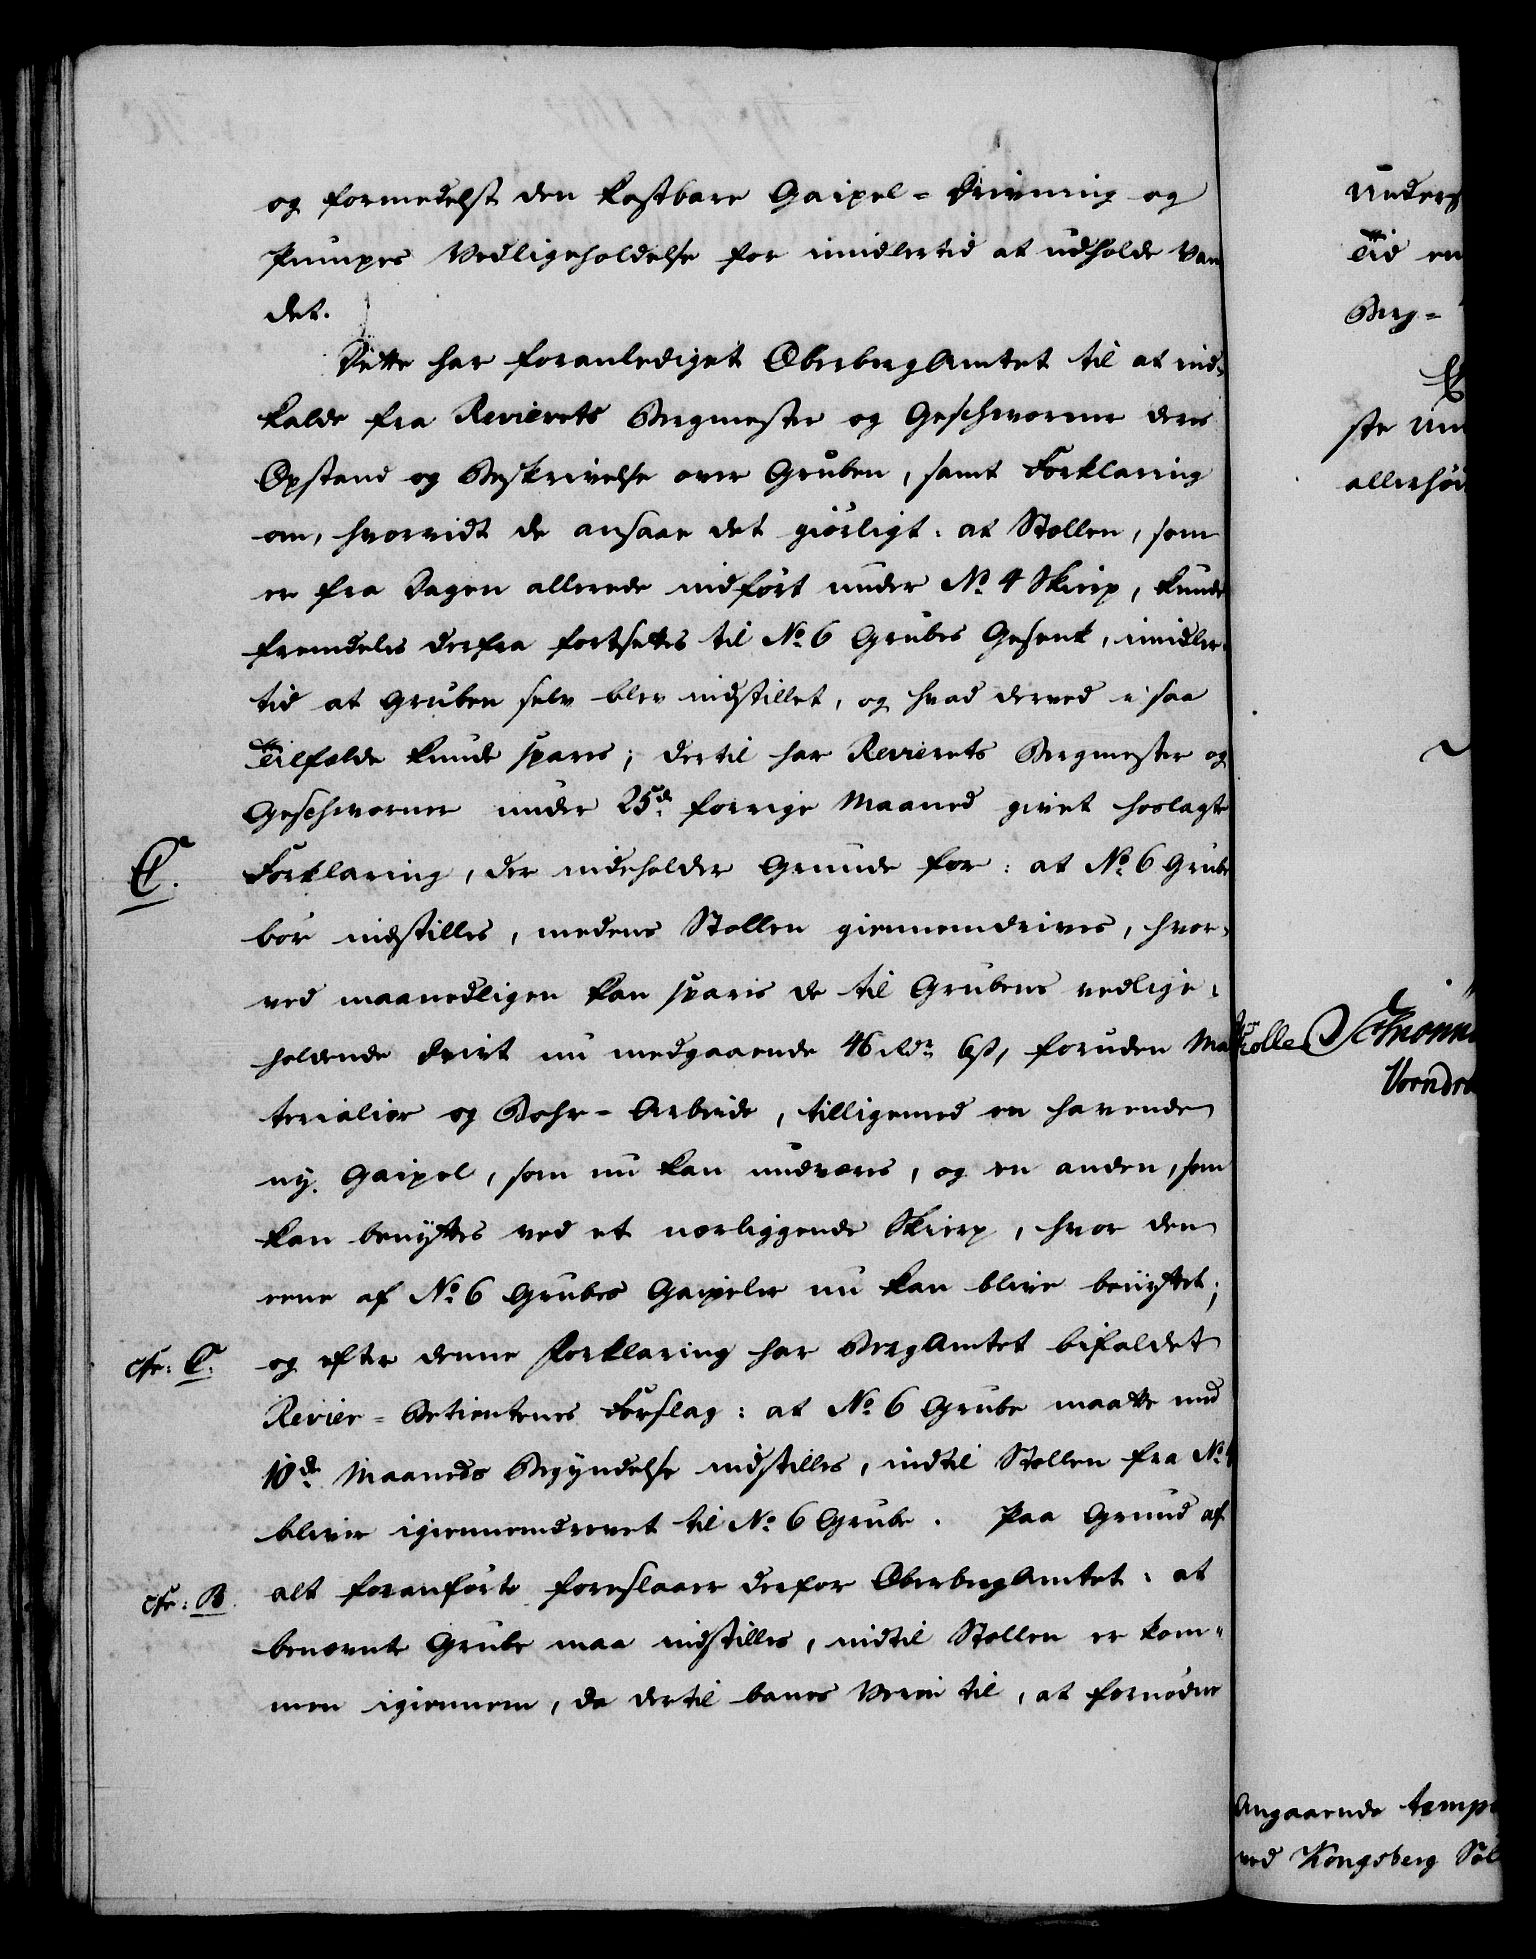 og formedelst den kostbare Gaipel-Drivning og
Pumpes Vedligeholdelse for imidlertid at udholde Van
det.
Dette har foranlediget OberbergAmtet til at ind-
kalde fra Revierets Bergmester og Geschworne deres
Opstand og Beskrivelse over Gruben, samt Forklaring
om, hvorvidt de ansaae det giörligt: at Stollen, som
er fra Dagen allerede indfört under No. 4 Skierp, kunde
fremdeles derfra fortsettes til No. 6 Grubes Gesenk, imidler-
tid at Gruben selv blev indstillet, og hvad derved i saa
Tilfælde kunde spares; dertil har Revierets Bergmester og
Geschworner under 25de forrige Maaned givet hoslagte
C.
Forklaring, der indeholder Grunde for: at No. 6 Grube
bör indstilles, medens Stollen giennemdrives, hvor-
ved maanedligen kan spares de til Grubens vedlige-
holdende Drivt nu medgaaende 46 Rdr 6 ß, foruden Ma
terialier og Bohr-Arbeide, tilligemed en havende
ny Gaipel, som nu kan undværes, og en anden, som
kan benyttes ved et nærliggende Skierp, hvor den
eene af No. 6 Grubes Gaipeler nu kan blive benyttet;
cfr: C.
og efter denne Forklaring har BergAmtet bifaldet
Revier-Betientenes Forslag: at No. 6 Grube maatte med
10de Maaneds Begyndelse indstilles, indtil Stollen fra No. 4
bliver igiennemdrevet til No. 6 Grube. Paa Grund af
cfr: B.
alt foranförte foreslaaer derfor OberbergAmtet: at
benævnte Grube maa indstilles, indtil Stollen er kom-
men igiennem, da dertil banes Veien til, at fornöden
Tid en
Berg-
ste
Schionn
Angaaende temp
ved Kongsberg Söl